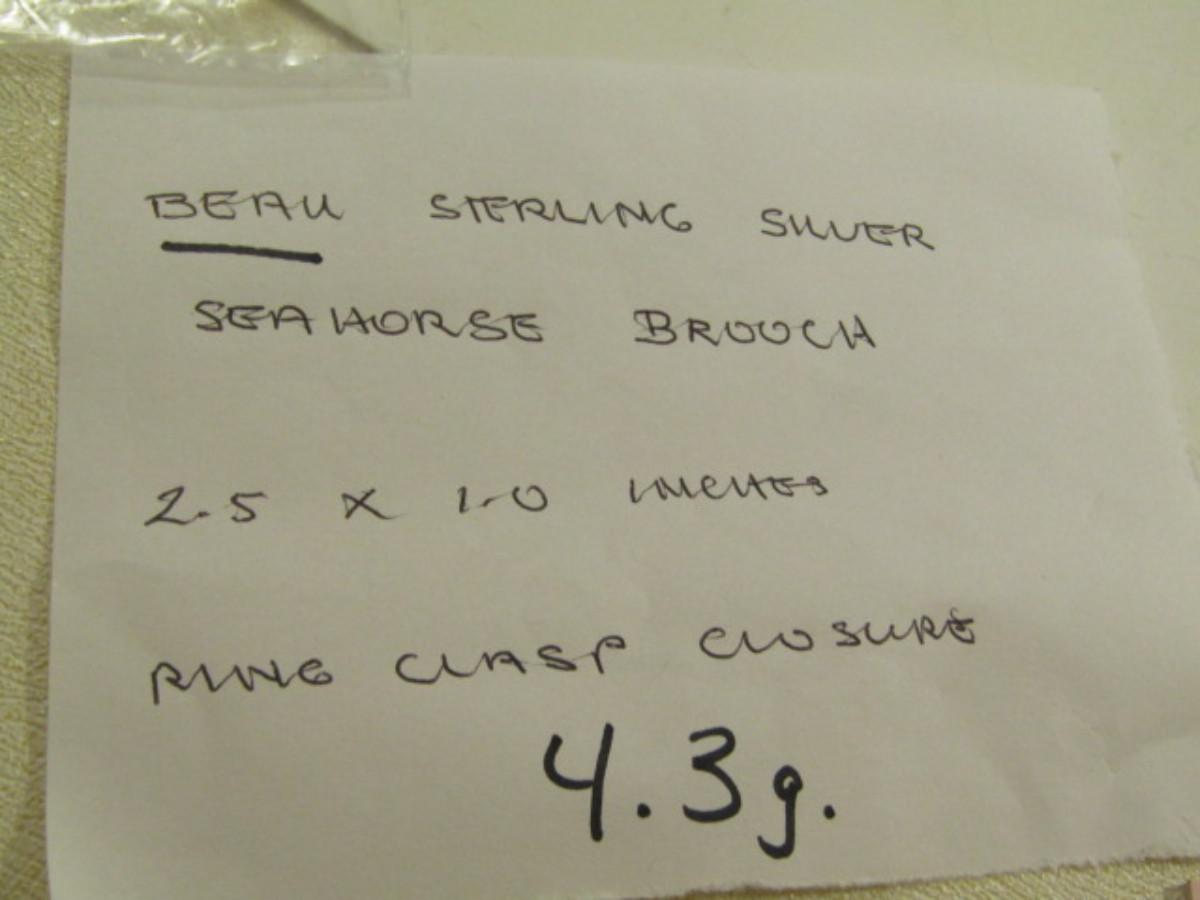 BEAU STERLING SILVER
SEAHORSE BROOCH
2.5 X 1.0 INCHES
RING CLASP CLOSURE
4.3g.